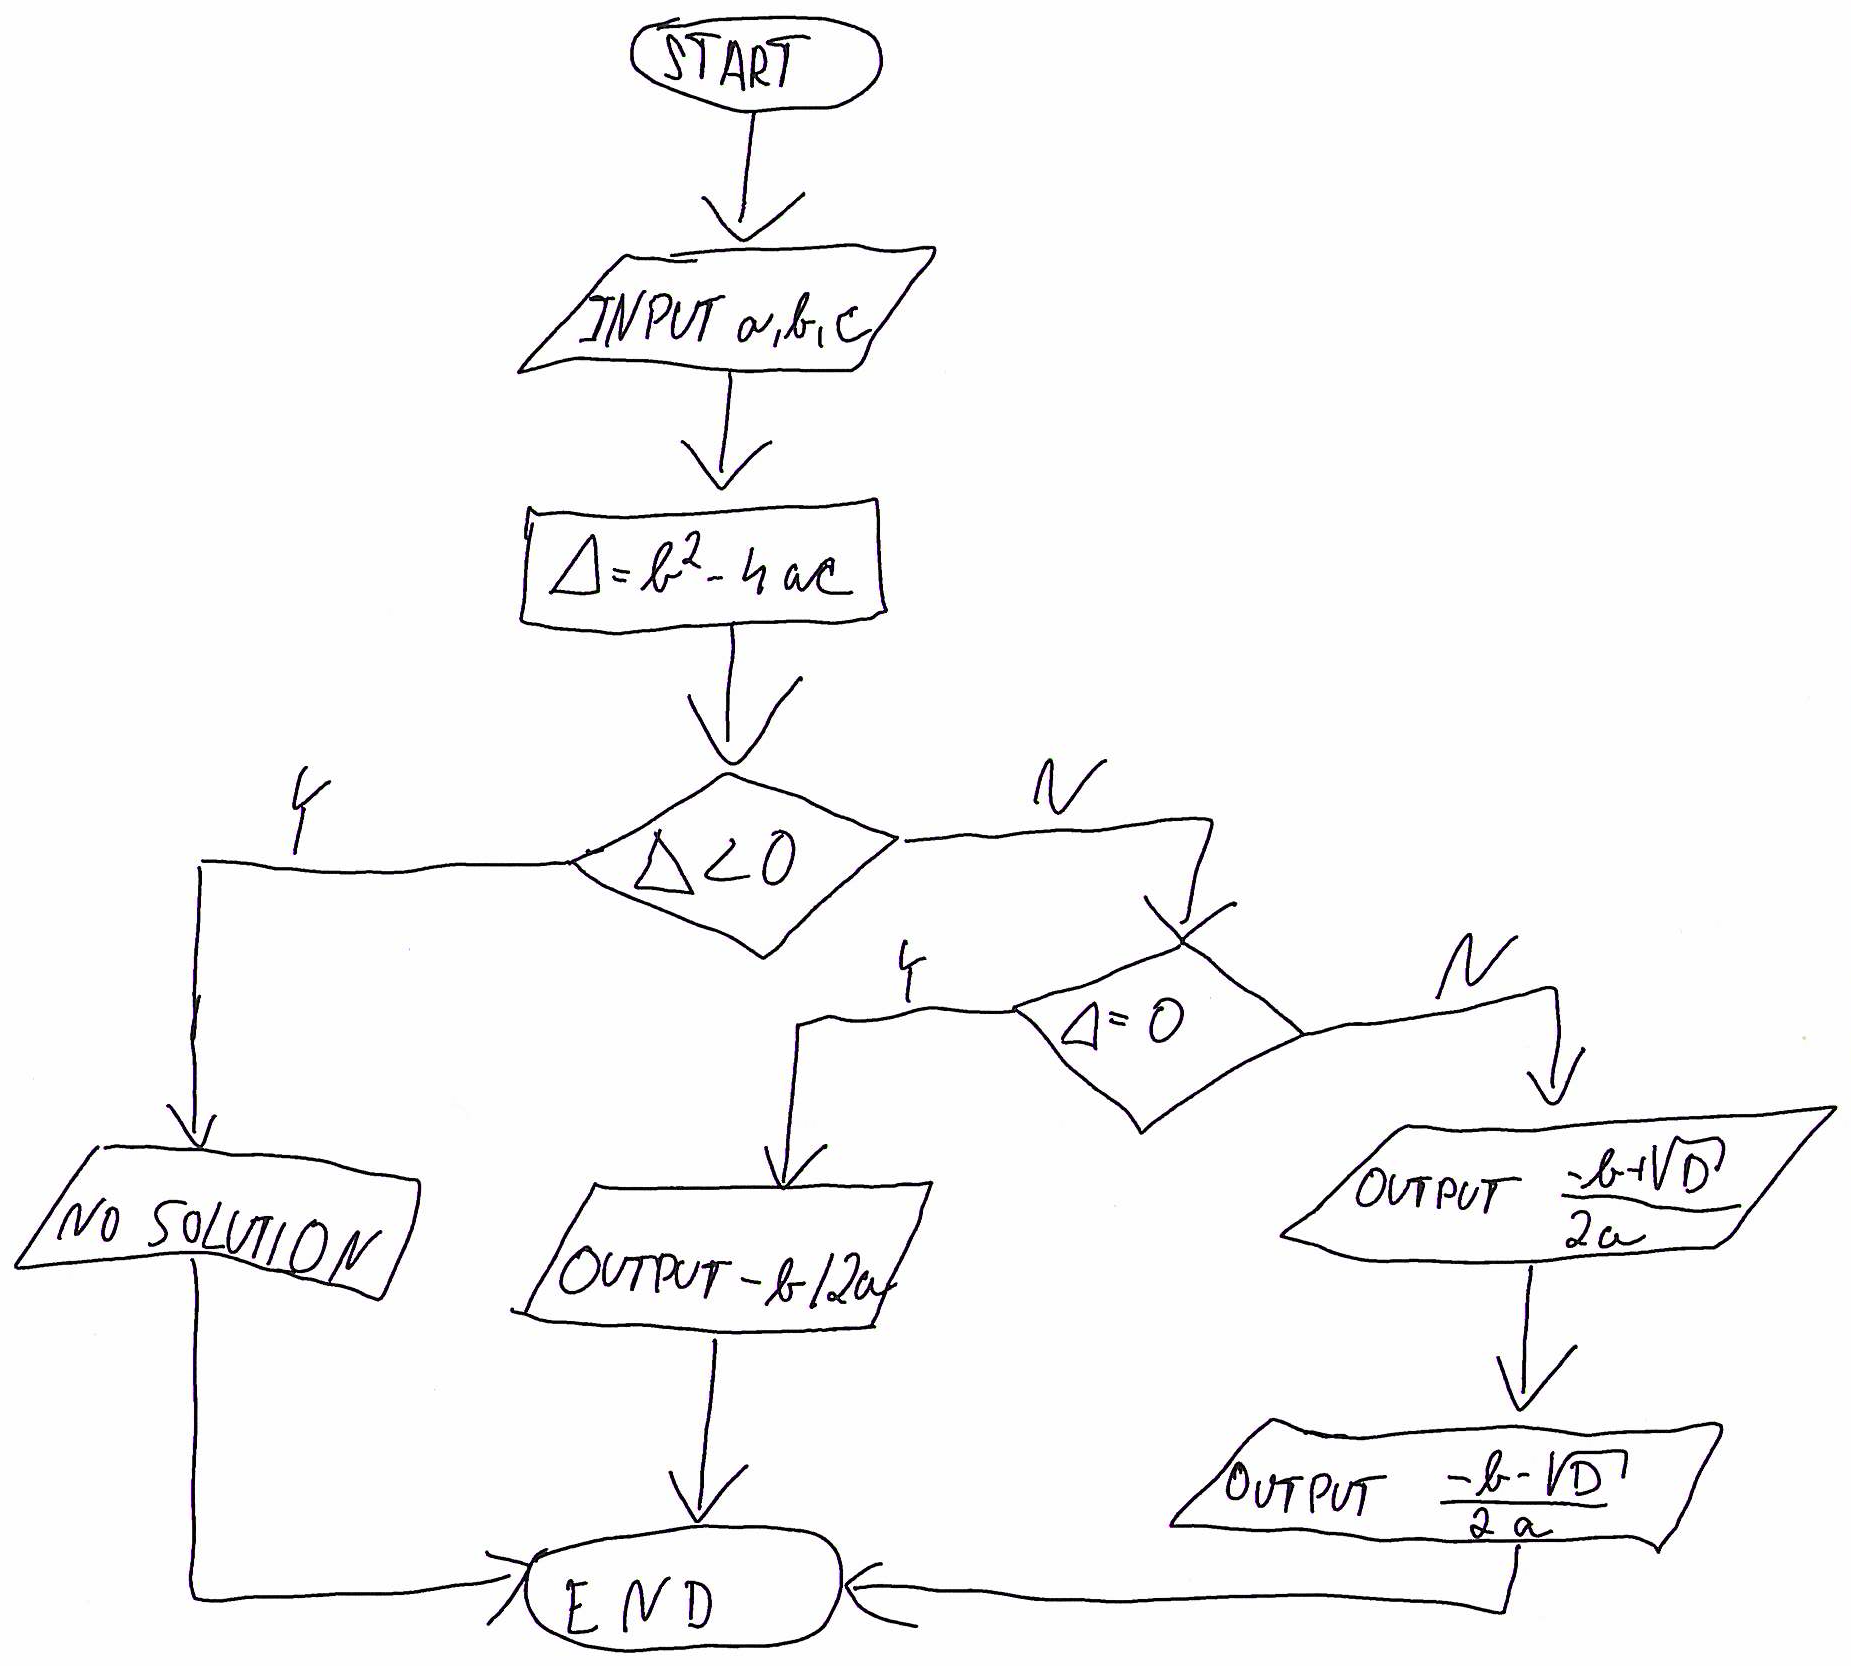 START
INPUT a, b, c
Δ = b² - 4ac
Δ < 0
Y
N
Δ = 0
Y
N
NO SOLUTION
OUTPUT -b/2a
OUTPUT (-b+√D)/2a
OUTPUT (-b-√D)/2a
END